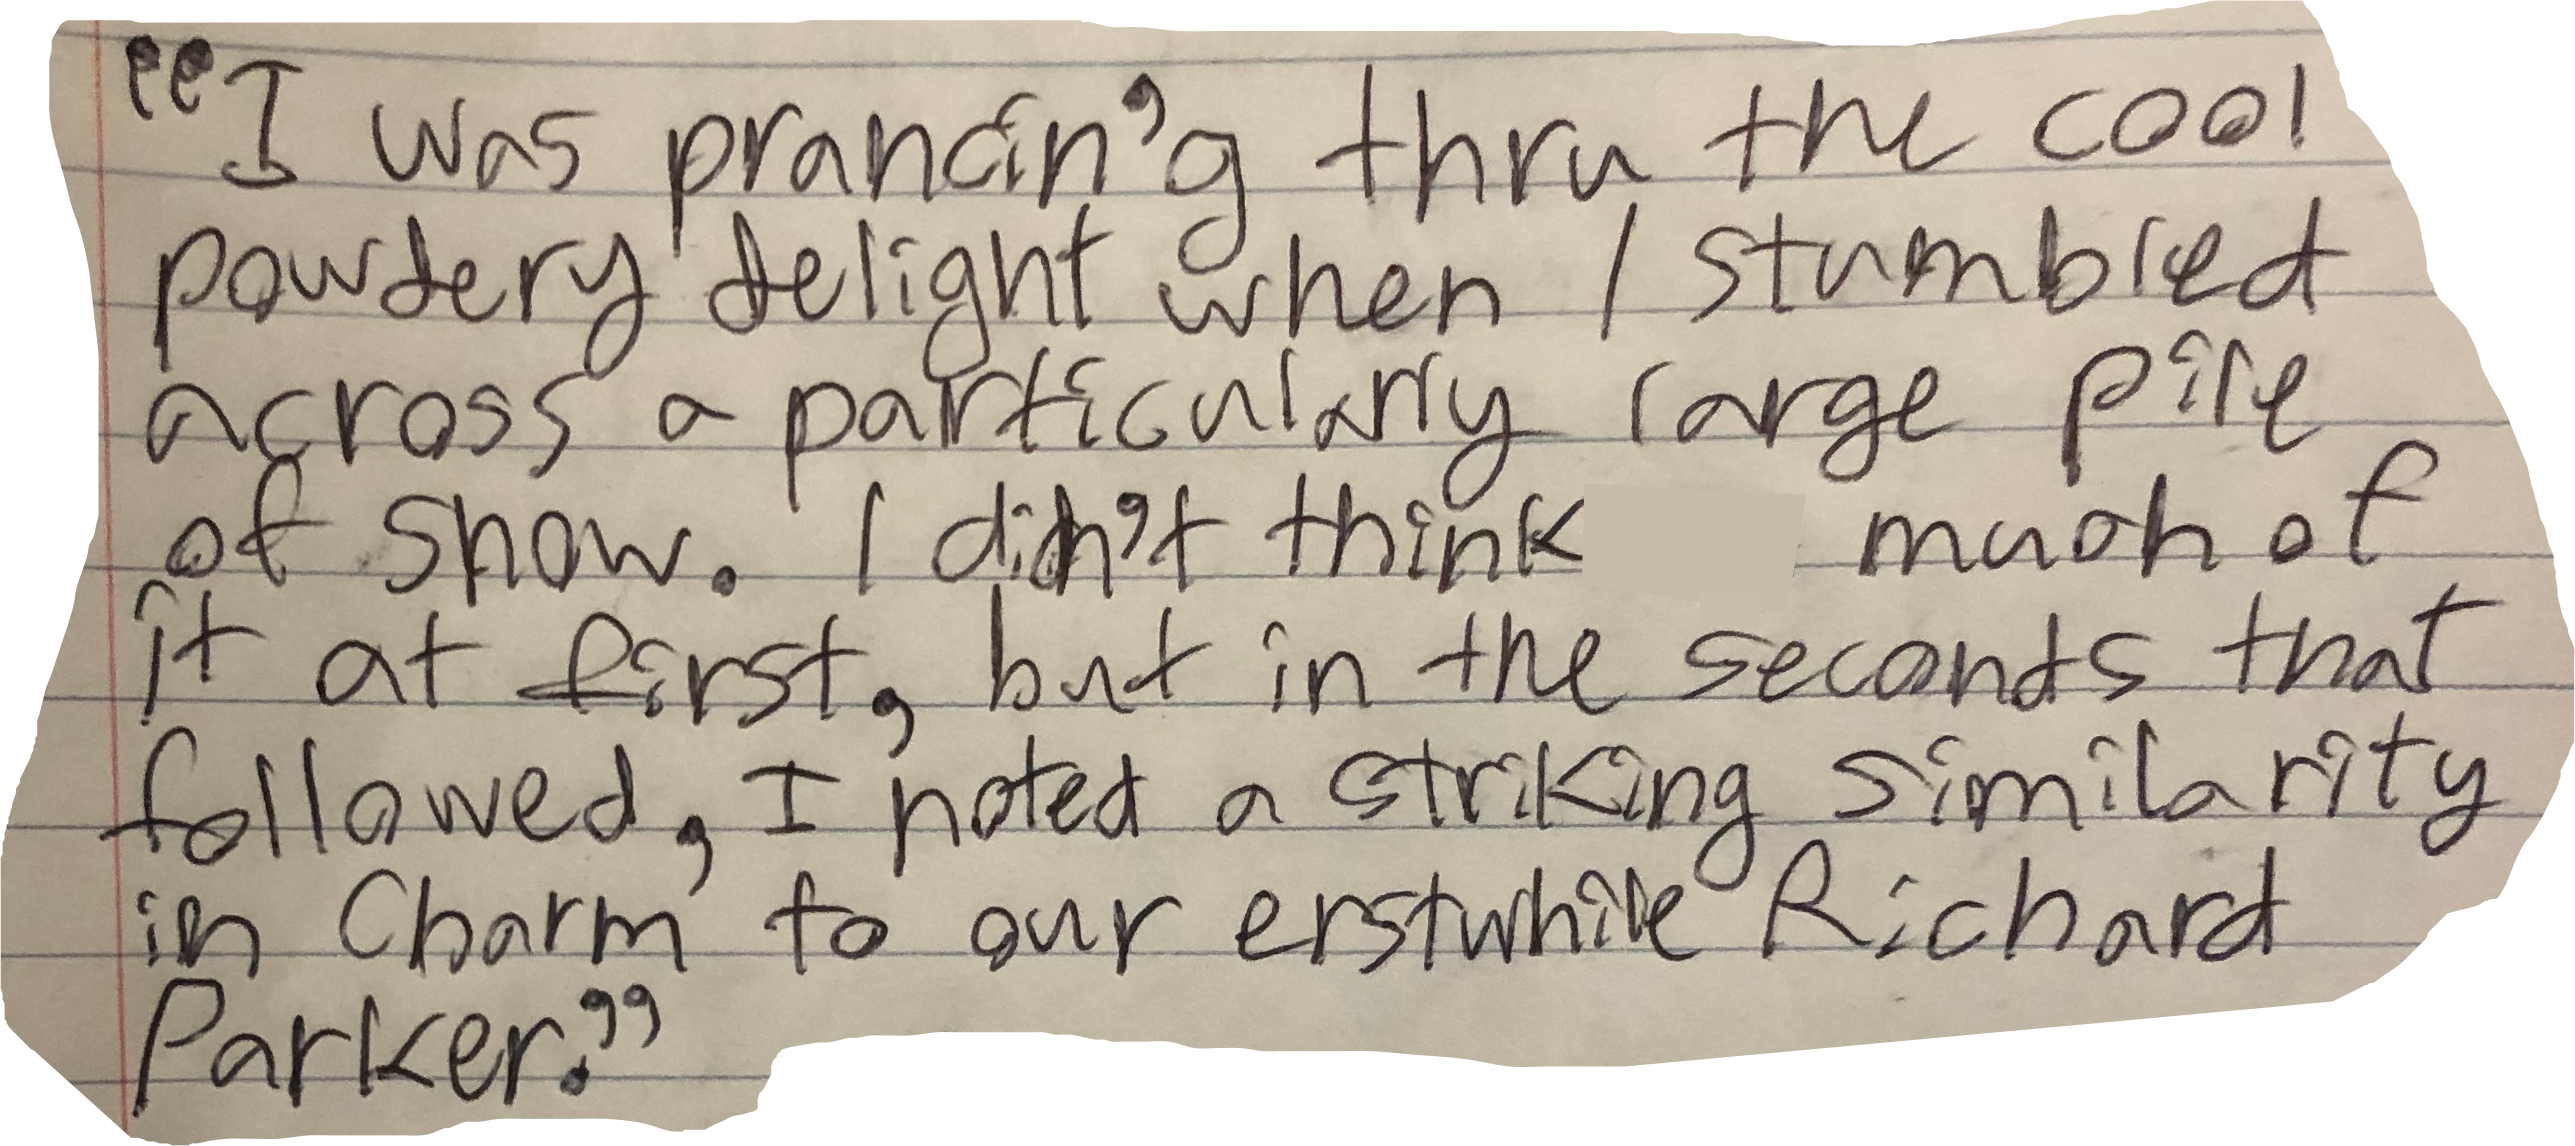 “I was prancin’g thru the cool
powdery delight when I stumbled
across a particularly large pile
of snow. I didn’t think much of
it at first, but in the seconds that
followed, I noted a striking similarity
in Charm to our erstwhile Richard
Parker.”